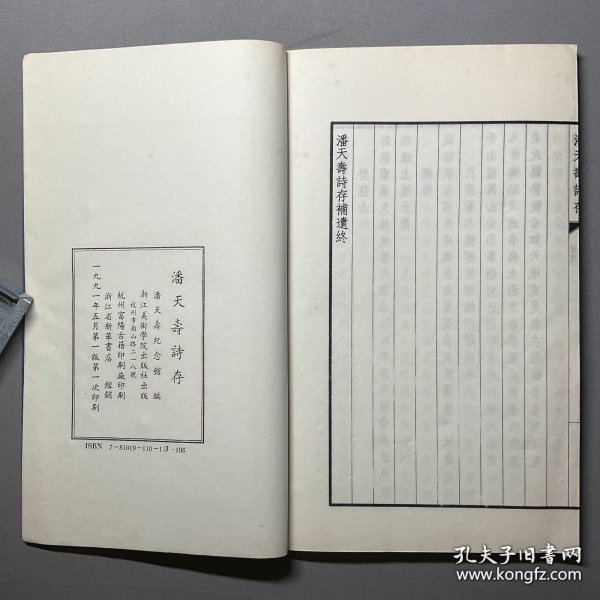 潘天壽詩存
潘天壽詩存補遺終
潘天壽詩存
潘天壽紀念館 編
浙江美術學院出版社出版
杭州市南山路二一八號
杭州富陽古籍印刷廠印刷
浙江省新華書店 經銷
一九九一年五月第一版第一次印刷
ISBN 7-81019-110-1/J·106
孔夫子旧书网
www.kongfz.com